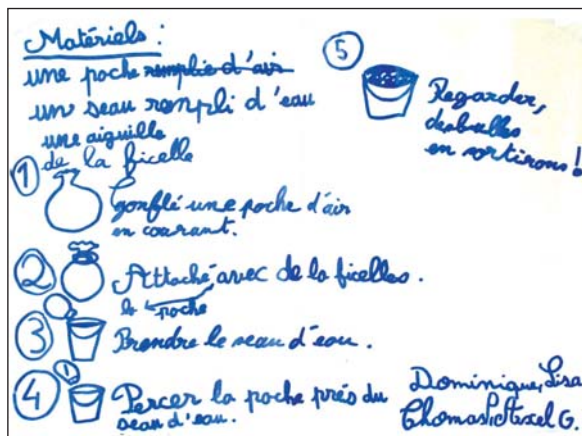 Matériels :
une poche remplie d'air
un seau rempli d'eau
une aiguille
de la ficelle
1
Gonflé une poche d'air
en courant.
2
Attaché avec de la ficelles.
la poche
3
Prendre le seau d'eau.
4
Percer la poche prés du
seau d'eau.
5
Regarder,
des bulles
en sortirons !
Dominique, Lisa
Thomas P, Axel G.